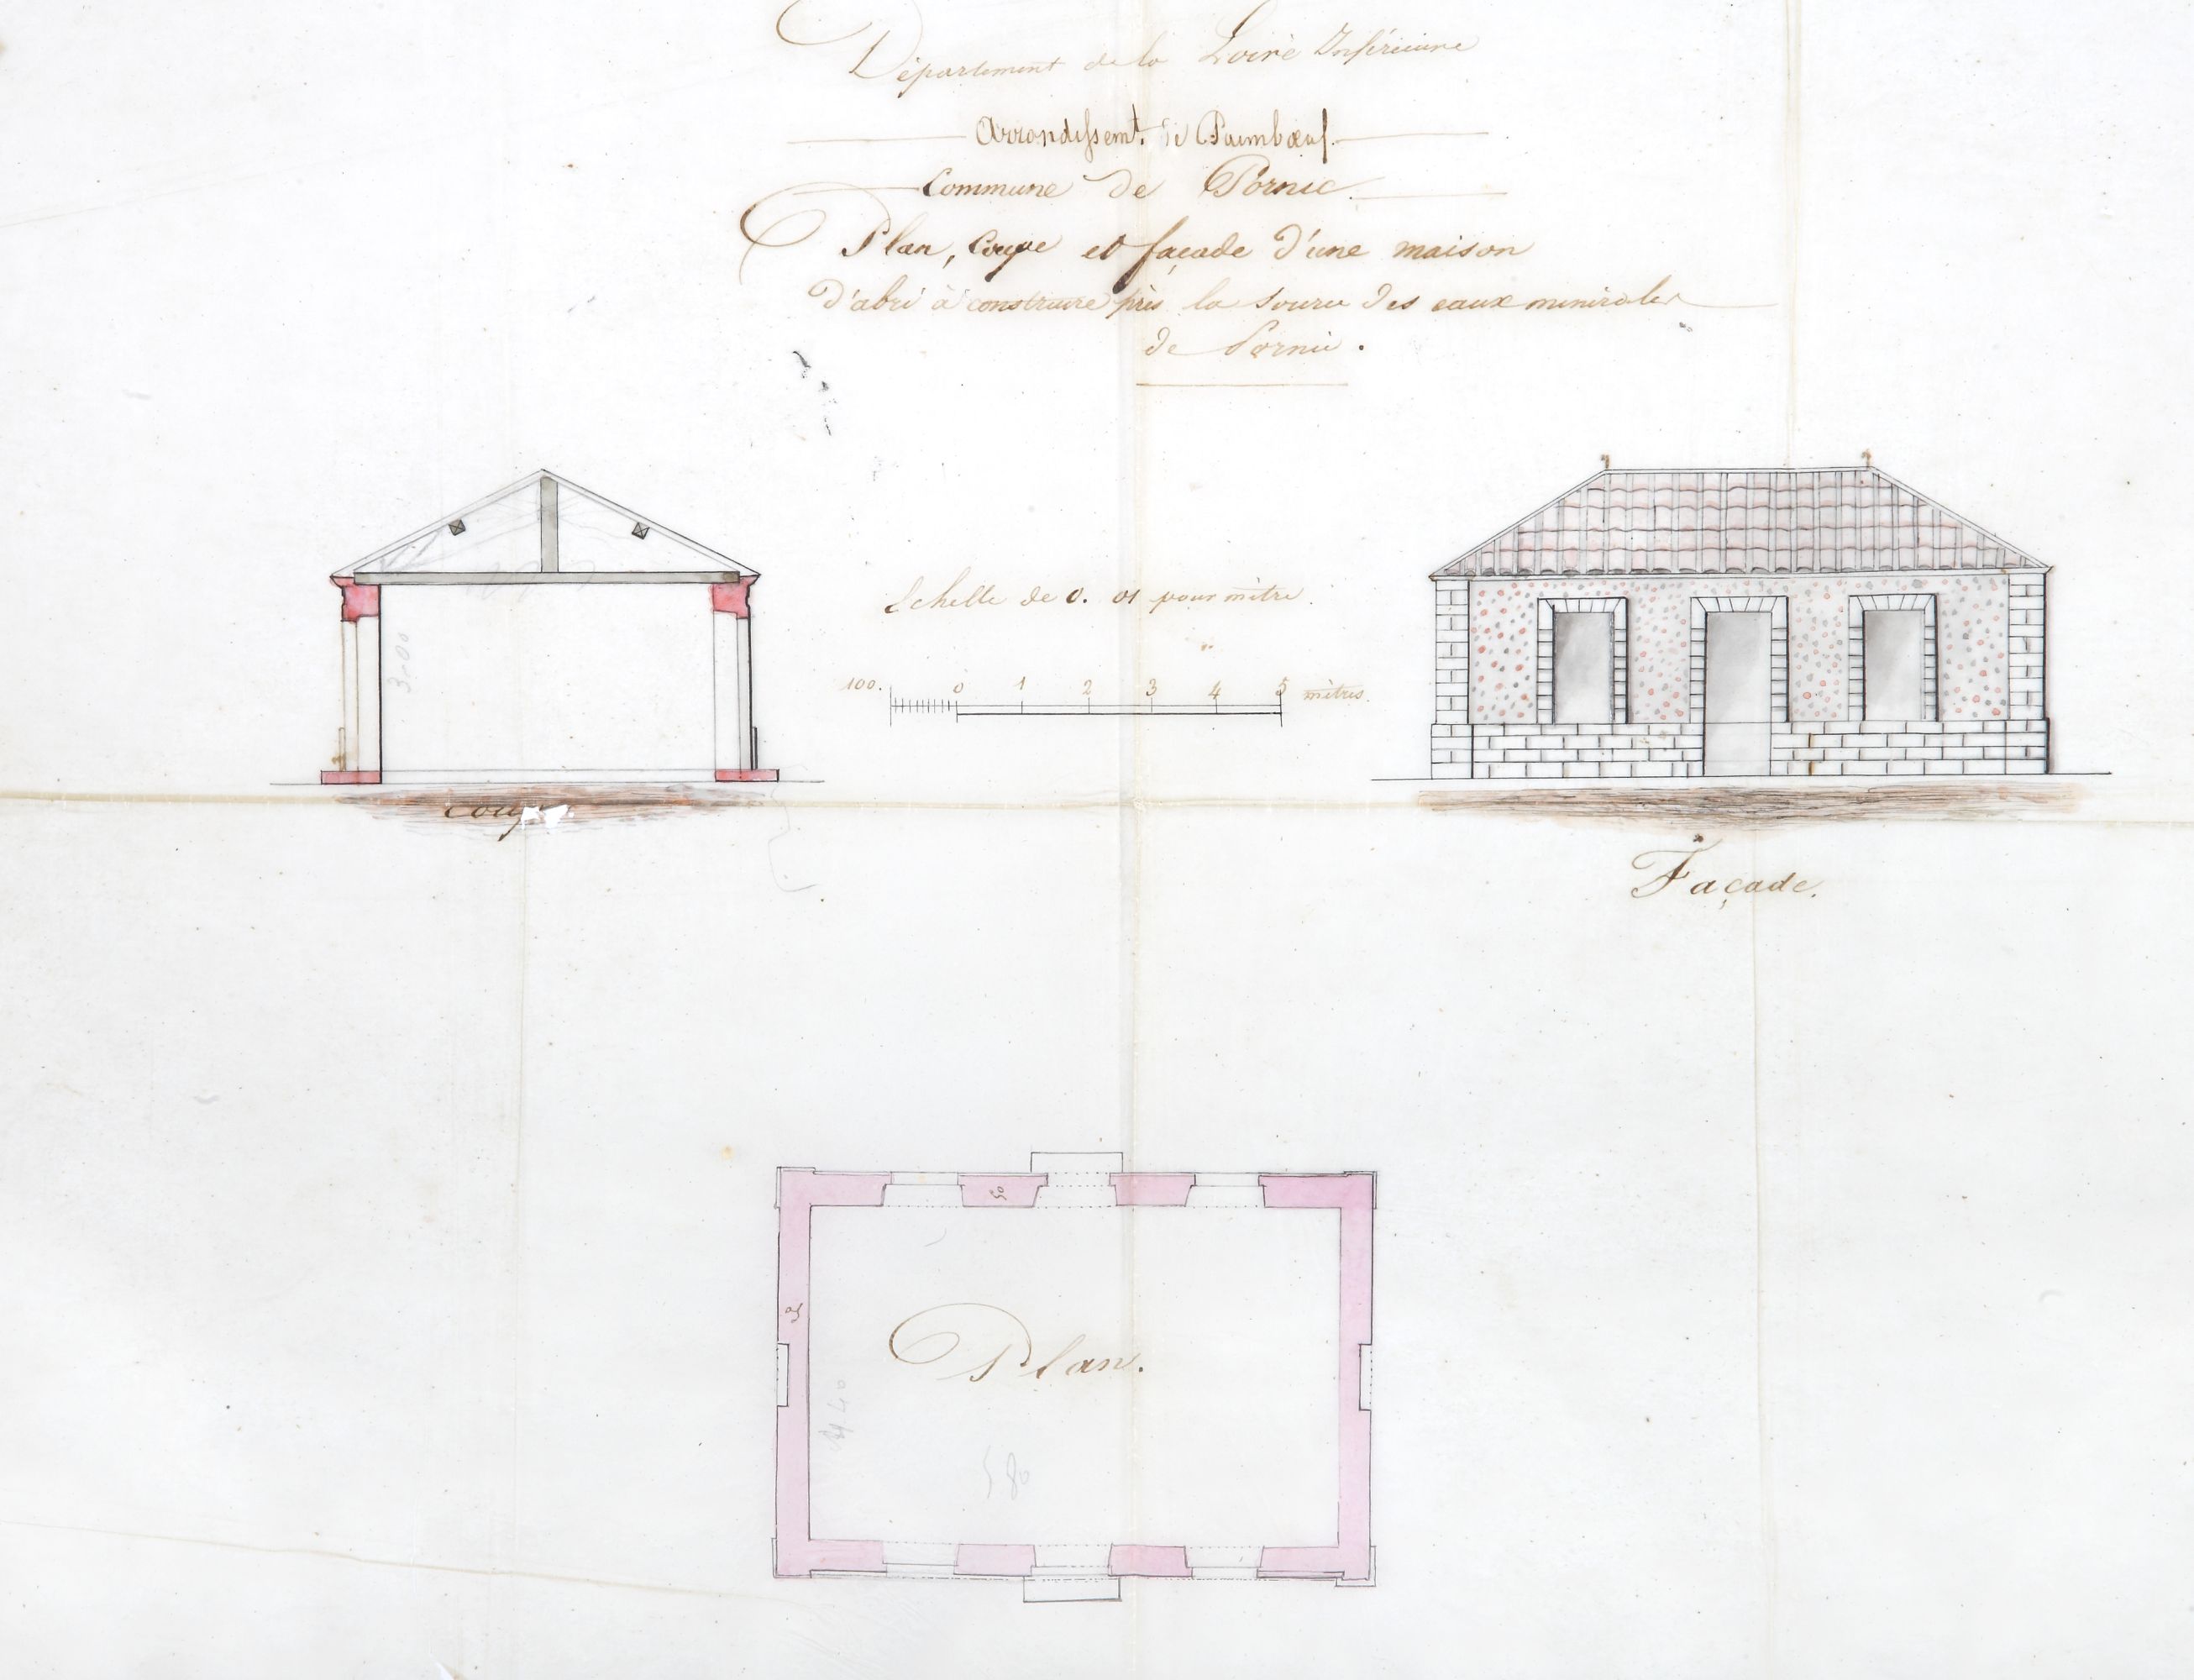 Département de la Loire Inférieure
Arrondissemt. de Paimbœuf.
Commune de Pornic.
Plan, Coupe et façade d'une maison
d'abri à construire près la source des eaux minérales
de Pornic.
Echelle de 0. 01 pour mètre.
100. 0 1 2 3 4 5 mètres.
3.00
Coupe
Façade.
50
50
Plan.
4 40
580